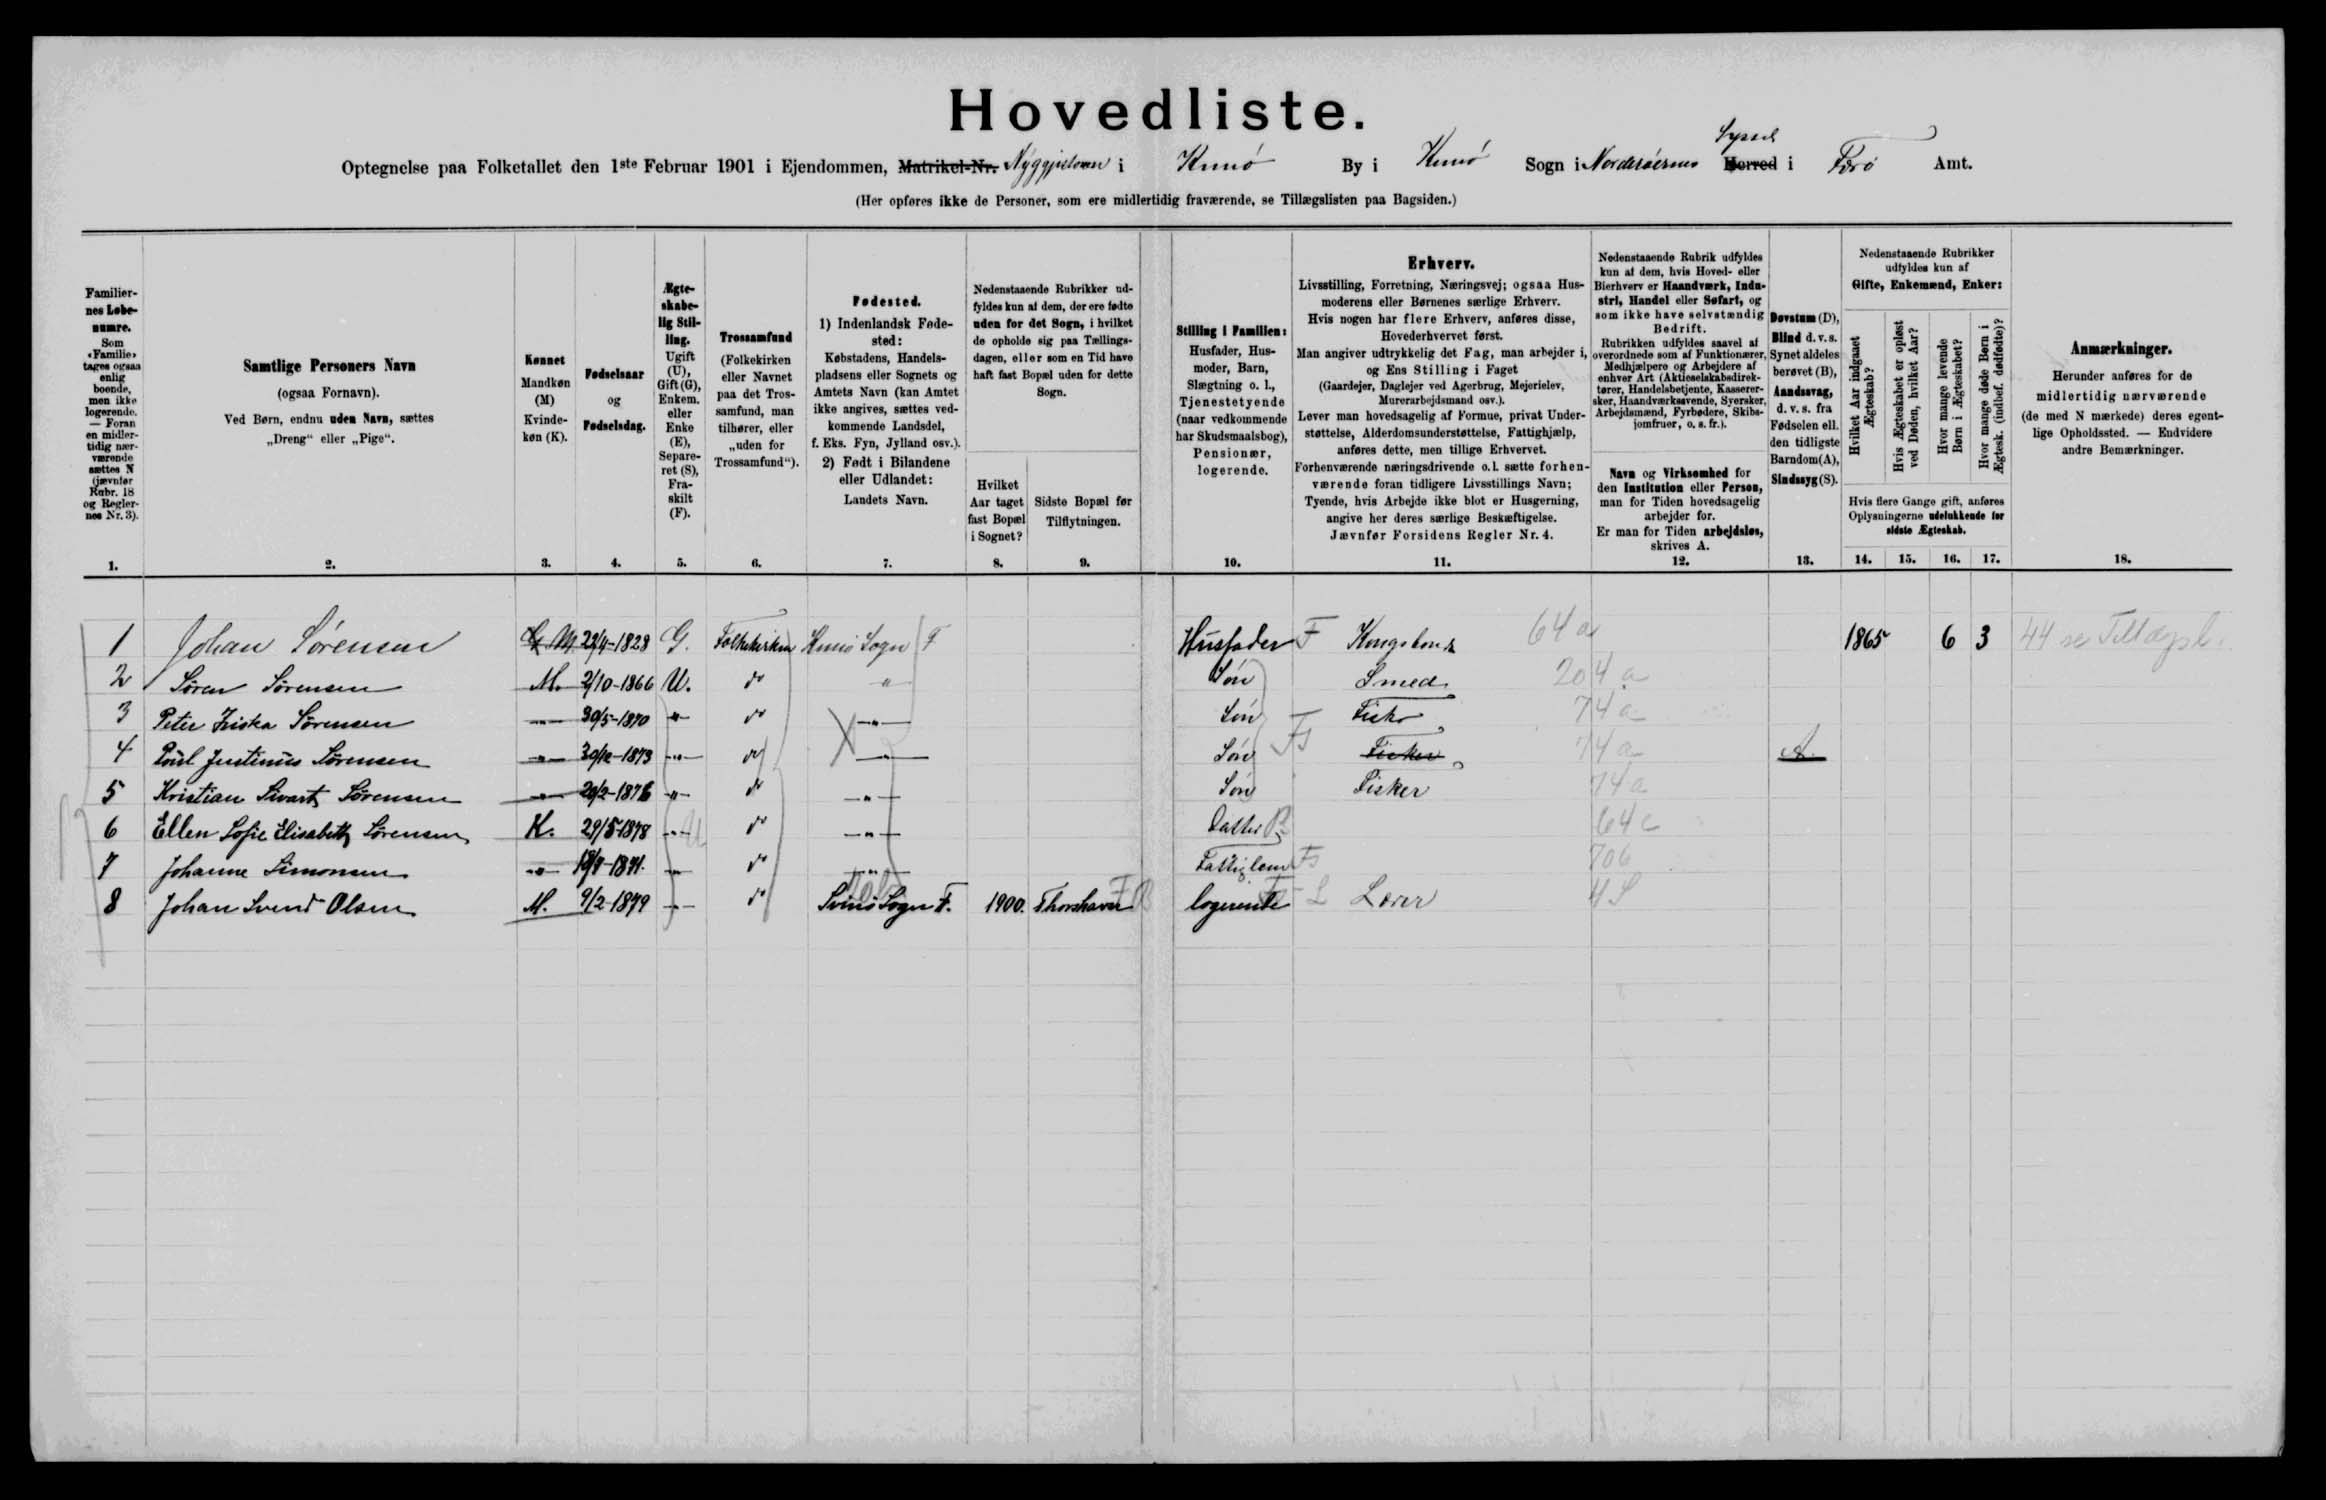 Hovedliste.
Syssel
Optegnelse paa Folketallet den 1ste Februar 1901 i Ejendommen, Matrikel-Nr. i Kunø By i Kunø Sogn i Norderöernes Herred i Færø Amt.
(Her opføres ikke de Personer, som ere midlertidig fraværende, se Tillægslisten paa Bagsiden.)
Familiernes Løbenumre.
Som «Familie» tages ogsaa enlig boende, men ikke logerende. — Foran en midlertidig nærværende sættes N (jævnfør Rubr. 18 og Reglernes Nr. 3).
Samtlige Personers Navn
(ogsaa Fornavn).
Ved Børn, endnu uden Navn, sættes
„Dreng“ eller „Pige“.
Kønnet
Mandkøn (M)
Kvindekøn (K).
Fødselsaar
og
Fødselsdag.
Ægteskabelig Stilling.
Ugift (U), Gift (G), Enkem. eller Enke (E), Separeret (S), Fraskilt (F).
Trossamfund
(Folkekirken eller Navnet paa det Trossamfund, man tilhører, eller „uden for Trossamfund“).
Fødested.
1) Indenlandsk Fødested:
Købstadens, Handelspladsens eller Sognets og Amtets Navn (kan Amtet ikke angives, sættes vedkommende Landsdel, f. Eks. Fyn, Jylland osv.).
2) Født i Bilandene eller Udlandet:
Landets Navn.
Nedenstaaende Rubrikker udfyldes kun af dem, der ere fødte uden for det Sogn, i hvilket de opholde sig paa Tællingsdagen, eller som en Tid have haft fast Bopæl uden for dette Sogn.
Hvilket Aar taget fast Bopæl i Sognet?
Sidste Bopæl før Tilflytningen.
Stilling i Familien:
Husfader, Husmoder, Barn, Slægtning o. l., Tjenestetyende (naar vedkommende har Skudsmaalsbog), Pensionær, logerende.
Erhverv.
Livsstilling, Forretning, Næringsvej; ogsaa Husmoderens eller Børnenes særlige Erhverv.
Hvis nogen har flere Erhverv, anføres disse, Hovederhvervet først.
Man angiver udtrykkelig det Fag, man arbejder i, og Ens Stilling i Faget
(Gaardejer, Daglejer ved Agerbrug, Mejerielev, Murerarbejdsmand osv.).
Lever man hovedsagelig af Formue, privat Understøttelse, Alderdomsunderstøttelse, Fattighjælp, anføres dette, men tillige Erhvervet.
Forhenværende næringsdrivende o. l. sætte forhenværende foran tidligere Livsstillings Navn;
Tyende, hvis Arbejde ikke blot er Husgerning, angive her deres særlige Beskæftigelse.
Jævnfør Forsidens Regler Nr. 4.
Nedenstaaende Rubrik udfyldes kun af dem, hvis Hoved- eller Bierhverv er Haandværk, Industri, Handel eller Søfart, og som ikke have selvstændig Bedrift.
Rubrikken udfyldes saavel af overordnede som af Funktionærer, Medhjælpere og Arbejdere af enhver Art (Aktieselskabsdirektører, Handelsbetjente, Kasserersker, Haandværkssvende, Syersker, Arbejdsmænd, Fyrbødere, Skibsjomfruer, o. s. fr.).
Navn og Virksomhed for den Institution eller Person, man for Tiden hovedsagelig arbejder for.
Er man for Tiden arbejdsløs, skrives A.
Døvstum (D), Blind d. v. s. Synet aldeles berøvet (B), Aandssvag, d. v. s. fra Fødselen ell. den tidligste Barndom (A), Sindssyg (S).
Nedenstaaende Rubrikker udfyldes kun af
Gifte, Enkemænd, Enker:
Hvilket Aar indgaaet Ægteskab?
Hvis Ægteskabet er opløst ved Døden, hvilket Aar?
Hvor mange levende Børn i Ægteskabet?
Hvor mange døde Børn i Ægtesk. (indbef. dødfødte)?
Hvis flere Gange gift, anføres Oplysningerne udelukkende for sidste Ægteskab.
Anmærkninger.
Herunder anføres for de midlertidig nærværende (de med N mærkede) deres egentlige Opholdssted. — Endvidere andre Bemærkninger.
1. 2. 3. 4. 5. 6. 7. 8. 9. 10. 11. 12. 13. 14. 15. 16. 17. 18.
1 Johan Sörensen M 23/4-1828 G. Folkekirken Kunö Sogn F Husfader F Kongsbonde 64 a 1865 6 3 44 se Tillægsl.
2 Sören Sörensen M. 2/10-1866 U. do " Sön Smed 204 a
3 Peter Sörensen " 30/5-1870 " do " Sön Fisker 74 a
4 Poul Justinus Sörensen " 30/12-1873 " do " Sön Fs Fisker 74 a A.
5 Kristian Sivart Sörensen " 20/2-1876 " do " Sön Fisker 74 a
6 Ellen Sofie Elisabeth Sörensen K. 29/5-1878 " U do " Datter B 64 c
7 Johanne Simonsen " " do " Fattiglem Fs 706
8 Johan Svend Olsen M. 9/2-1879 " do Svinö Sogn F. 1900. Thorshavn logerende L Lærer 4 S